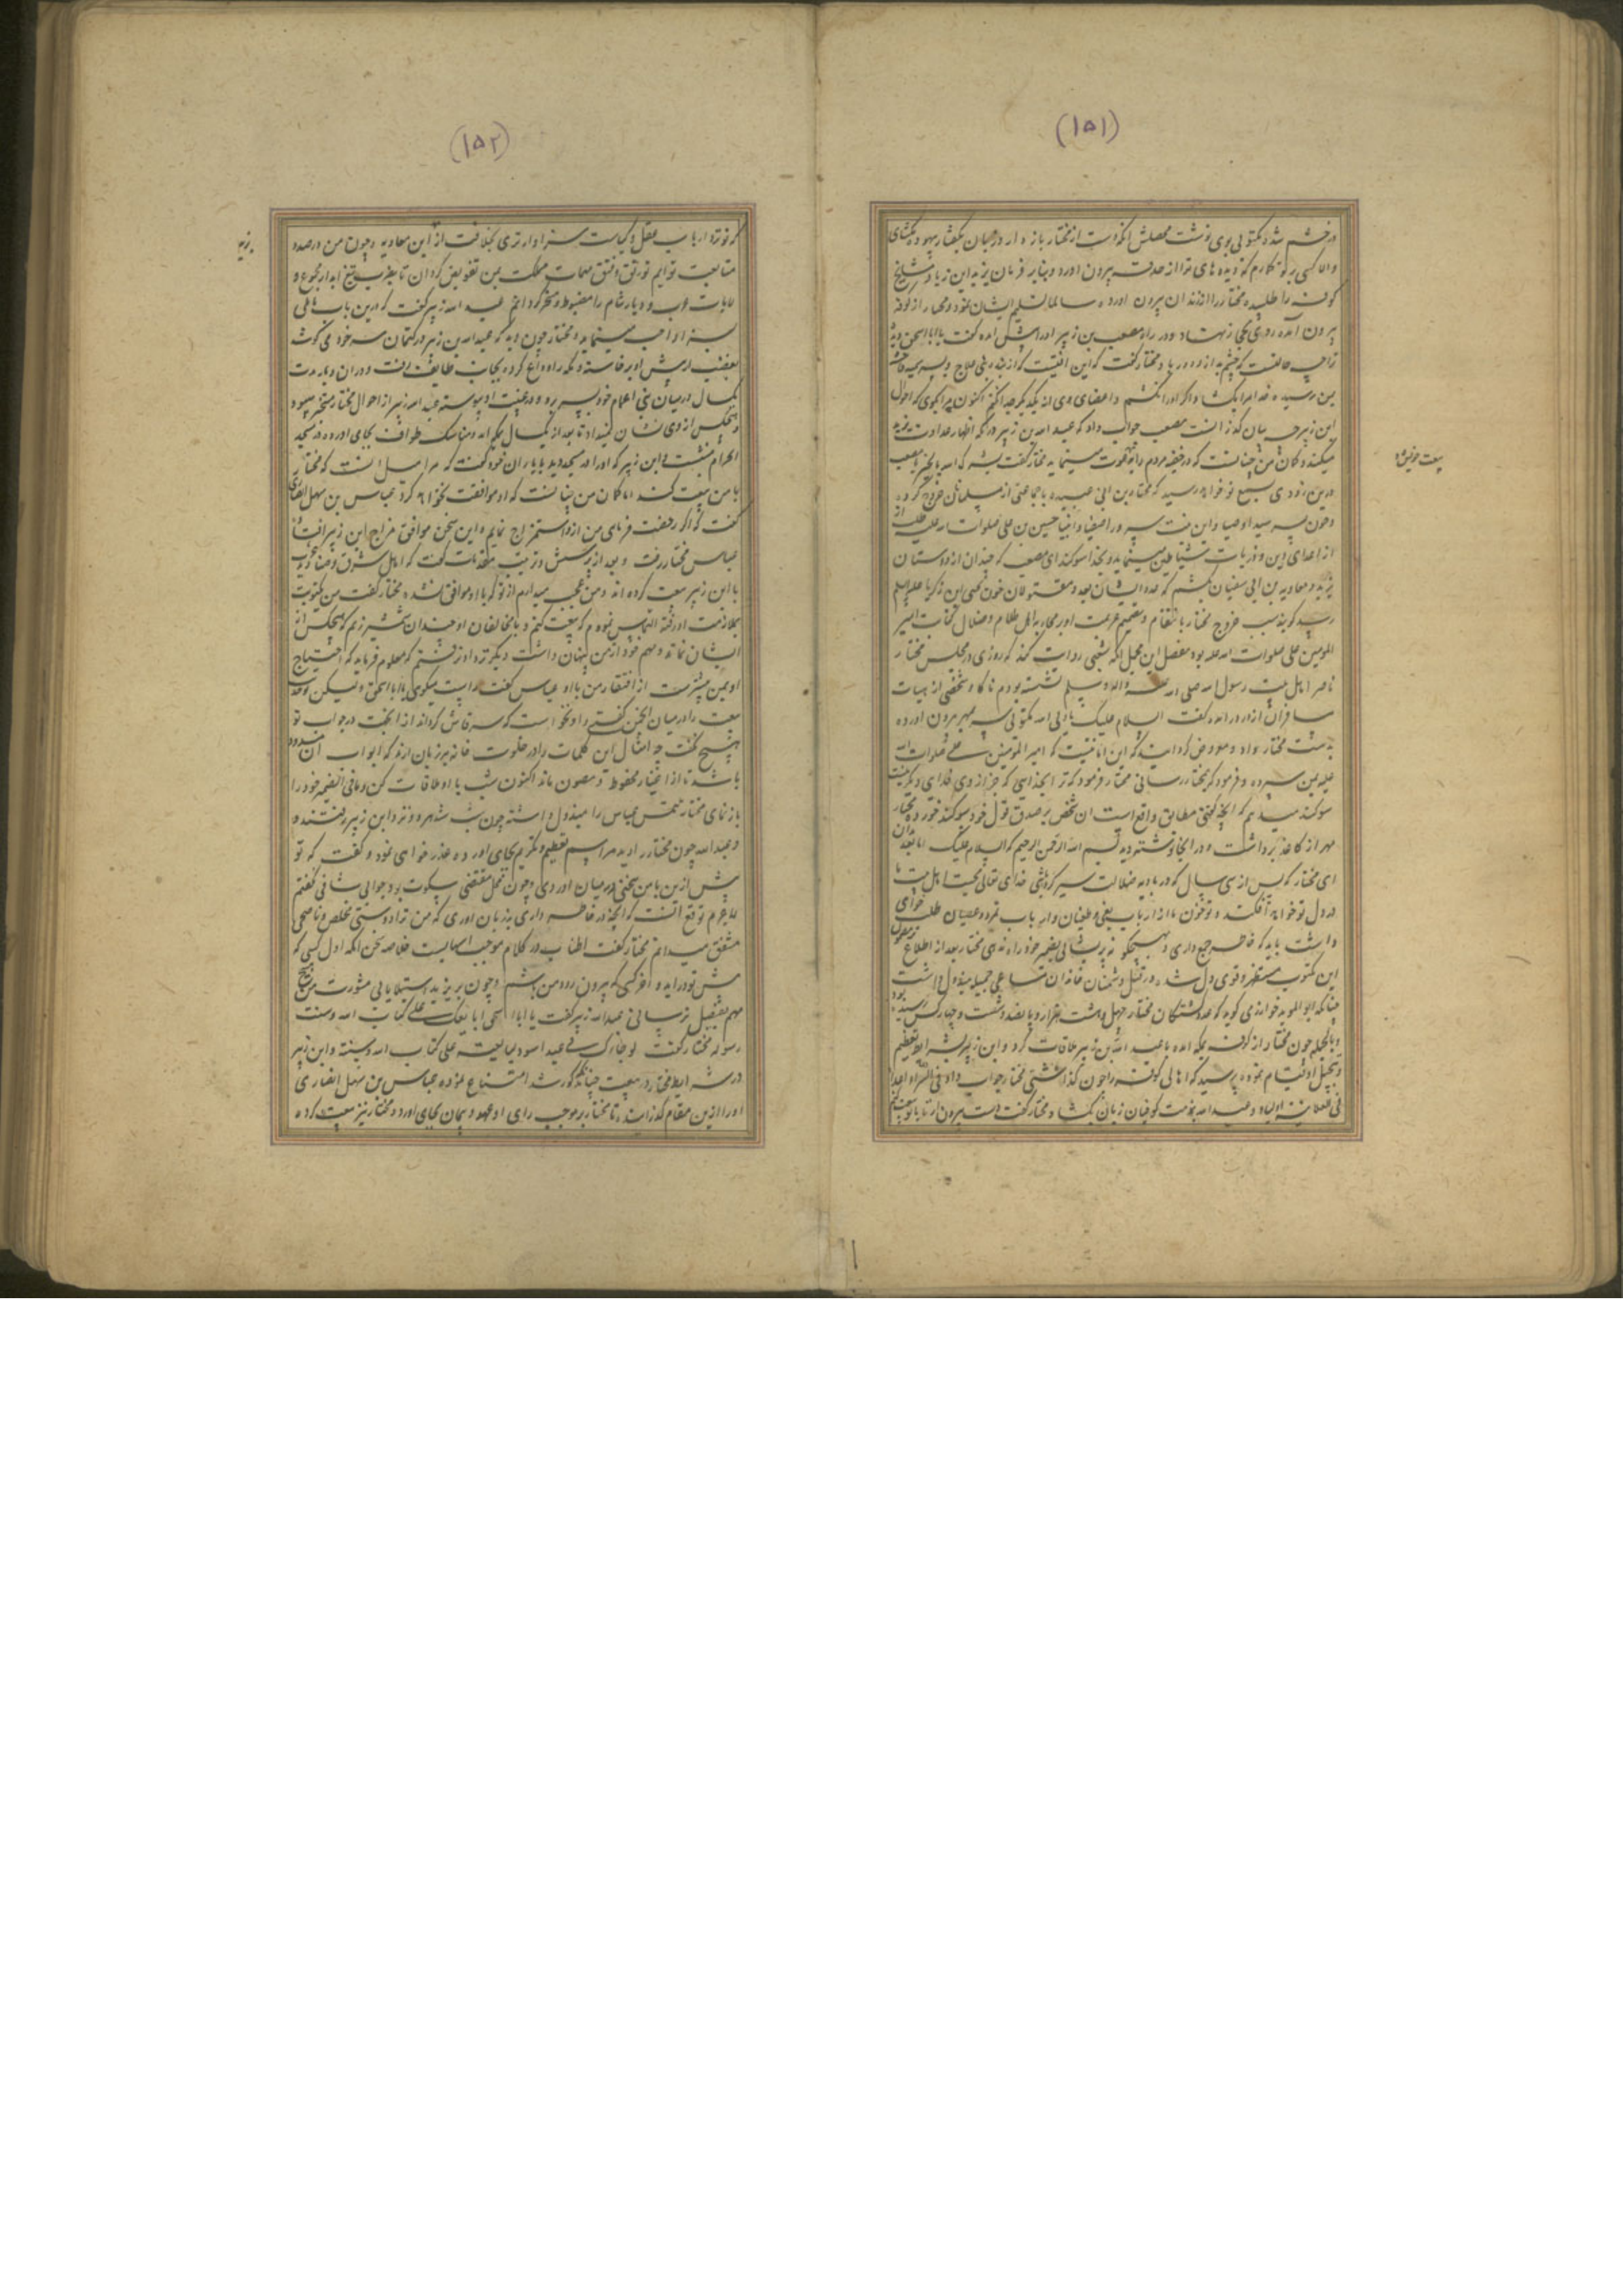 (۱۵۱)
در خشم شد و مکتوبی بوی نوشت محصلش آنکه دست از مختار بازدار
والا کسی برتو کارم که دیده های ترا از حدقه بیرون آورد و بنابر فرمان یزید ابن زیاد مشایخ
کوفه را طلبیده مختار را از زندان بیرون آورده سالما تسلیم ایشان نمود و مختار از کوفه
بیرون آمده روی بحجاز نهاد و در راه مصعب بن زبیر او را پیش آمده گفت یا ابا اسحق
ترا چه حالتست که چشم و مختار گفت که این
بمن رسیده خدا مرا بکشد اگر او را نکشم و اعضای وی از یکدیگر جدا نکنم اکنون
ابن زبیر مصعب جواب داد که عبدالله بن زبیر در مکه اظهار عداوت یزید
میکند و گمان من چنانست که در خفیه مردم را دعوت مینماید مختار گفت
درین زودی بسمع تو خواهد رسید که مختار بن ابی عبیده با جماعتی از مسلمانان خروج کرده
و خون پسر سید اوصیا و ابن بنت حسین بن علی صلوات الله علیه طلب
از اعدای دین و ذریات شیاطین مینماید و بخدا سوگند ای مصعب که چندان از دوستان
یزید و معاویه بن ابی سفیان بکشم که عدد ایشان بعدد مقتولان خون یحیی ابن زکریا علیه السلام
رسد گویند سبب خروج مختار بانتقام
المومنین علی صلوات الله علیه بود مفصل این مجمل آنکه شعبی روایت کند که روزی در مجلس مختار
ناصر اهل بیت رسول الله صلی الله علیه و اله و سلم نشسته بودم ناگاه شخصی از هیات
مسافران از در درآمده گفت السلام علیک یا ولی الله مکتوبی سر بمهر بیرون آورده
بدست مختار داد و معروض گردانید که این امانتیست که امیر المومنین علی صلوات الله
علیه بمن سپرده و فرمود که بمختار رسانی مختار فرمود که ترا بخدایی که جز از وی خدای دیگر نیست
سوگند میدهم که آنچه گفتی مطابق واقع است آن شخص بر صدق قول خود سوگند خورده مختار
مهر از کاغذ برداشت و در آنجا نوشته دید بسم الله الرحمن الرحیم السلام علیک اما بعد بدان
ای مختار که پس از سی سال که در بادیه ضلالت سیر کرده باشی خدای تعالی محبت اهل بیت ما
در دل تو خواهد افکند و تو خون ما را از ارباب بغی و طغیان و ارباب تمرد و عصیان طلب خواهی
داشت باید که خاطر جمع داری و بهیچگونه پریشانی بضمیر خود راه ندهی مختار بعد از اطلاع
این مکتوب مستظهر و قوی دل شده در قتل دشمنان خاندان مساعی جمیله مبذول داشت
چنانکه ابو المؤید خوارزمی گوید که عدد کشتگان مختار چهل و هشت هزار و پانصد و شصت و چهار کس رسیده بود
و بالجمله چون مختار از کوفه بمکه آمده با عبدالله بن زبیر ملاقات کرد و ابن زبیر شرایط تعظیم
و تبجیل او قیام نموده پرسید که اهالی کوفه را چون گذاشتی مختار جواب داد فی السر اعداء
فی العلانیة اولیاء و عبدالله بمذمت کوفیان زبان بگشاد و مختار گفت دست بیرون آر تا با تو بیعت کنم
(۱۵۲)
که نزد ارباب عقل و کیاست سزاوارتری بخلافت از ابن معاویه و چون من درصدد
متابعت تو آیم رتق و فتق مهمات مملکت بمن تفویض گردان تا بضرب تیغ آبدار مجموع
ولایات عرب و دیار شام را مضبوط و مسخر گردانم عبدالله زبیر گفت که درین باب تاملی
بسزا واجب مینماید و مختار چون دید که عبدالله بن زبیر در کتمان سر خود می کوشد
بغضب از پیش او برخاسته و مکه را وداع کرده بجانب طایف رفت و در آن دیار مدت
یکسال در میان بنی اعمام خود بسر برد و در غیبت او پیوسته عبدالله زبیر از احوال مختار مستخبر میبود
و هیچکس از وی نشان نمیداد تا بعد از یکسال بمکه آمد و مناسک طواف بجای آورده در مسجد
الحرام بنشست ابن زبیر که او را در مسجد دید با یاران خود گفت که مرا میل آنست که مختار
با من بیعت کند اما گمان من چنانست که او موافقت نخواهد کرد عباس بن سهل انصاری
گفت که اگر رخصت فرمای من از و استمزاج نمایم و این سخن موافق مزاج ابن زبیر افتاد
عباس مختار رفت و بعد از پرسش و ترتیب مقدمات گفت که اهل شرف
با ابن زبیر بیعت کرده اند و من عجب میدارم از تو که با او موافق نشده مختار گفت من
بملازمت او رفته التماس نمودم که بیعت کنم و با مخالفان او چندان شمشیر زنم که هیچکس از
ایشان نماند و مهم خود از من پنهان داشت دیگر نزد او نرفتم که معلوم فرماید که احتیاج
او بمن بیشترست از افتقار من باو عباس گفت راست میگوی یا ابا اسحق ولیکن
بیعت را در میان انجمن گفتی و او نخواست که سر فاش گرداند از آنجهت در جواب تو
هیچ نگفت چه امثال این کلمات را در خلوت خانه بر زبان آرند که ابواب آن مسدود
باشد تا از اغیار محفوظ و مصون ماند اکنون شب با او ملاقات کن و ما فی الضمیر خود را
باز نمای مختار ملتمس عباس را مبذول داشته چون شب شد هر دو نزد ابن زبیر رفتند
و عبدالله چون مختار را دید مراسم تعظیم و تکریم بجای آورده عذرخواهی نمود و گفت که تو
پیش ازین با من سخنی در میان آوردی و چون محل مقتضی سکوت بود جوابی شافی نگفتم
لاجرم توقع آنست که آنچه در خاطر داری بزبان آوری که من ترا دوستی مخلص و ناصحی
مشفق میدانم مختار گفت اطناب در کلام موجب است خلاصه سخن آنکه اول کسی که
پیش تو درآید و آخر کسی که بیرون رود من باشم و چون بر یزید استیلا یابی مشورت من هیچ
مهم بفیصل نرسانی عبدالله زبیر گفت یا ابا اسحق ابایعک علی کتاب الله و سنت
رسوله مختار گفت
در شرایط مختار در بیعت چنانکه مذکور شد امتناع نموده عباس بن سهل انصاری
او را ازین مقام گذرانید تا مختار بر موجب رای او عهد و پیمان بجای آورد و مختار نیز بیعت کرده